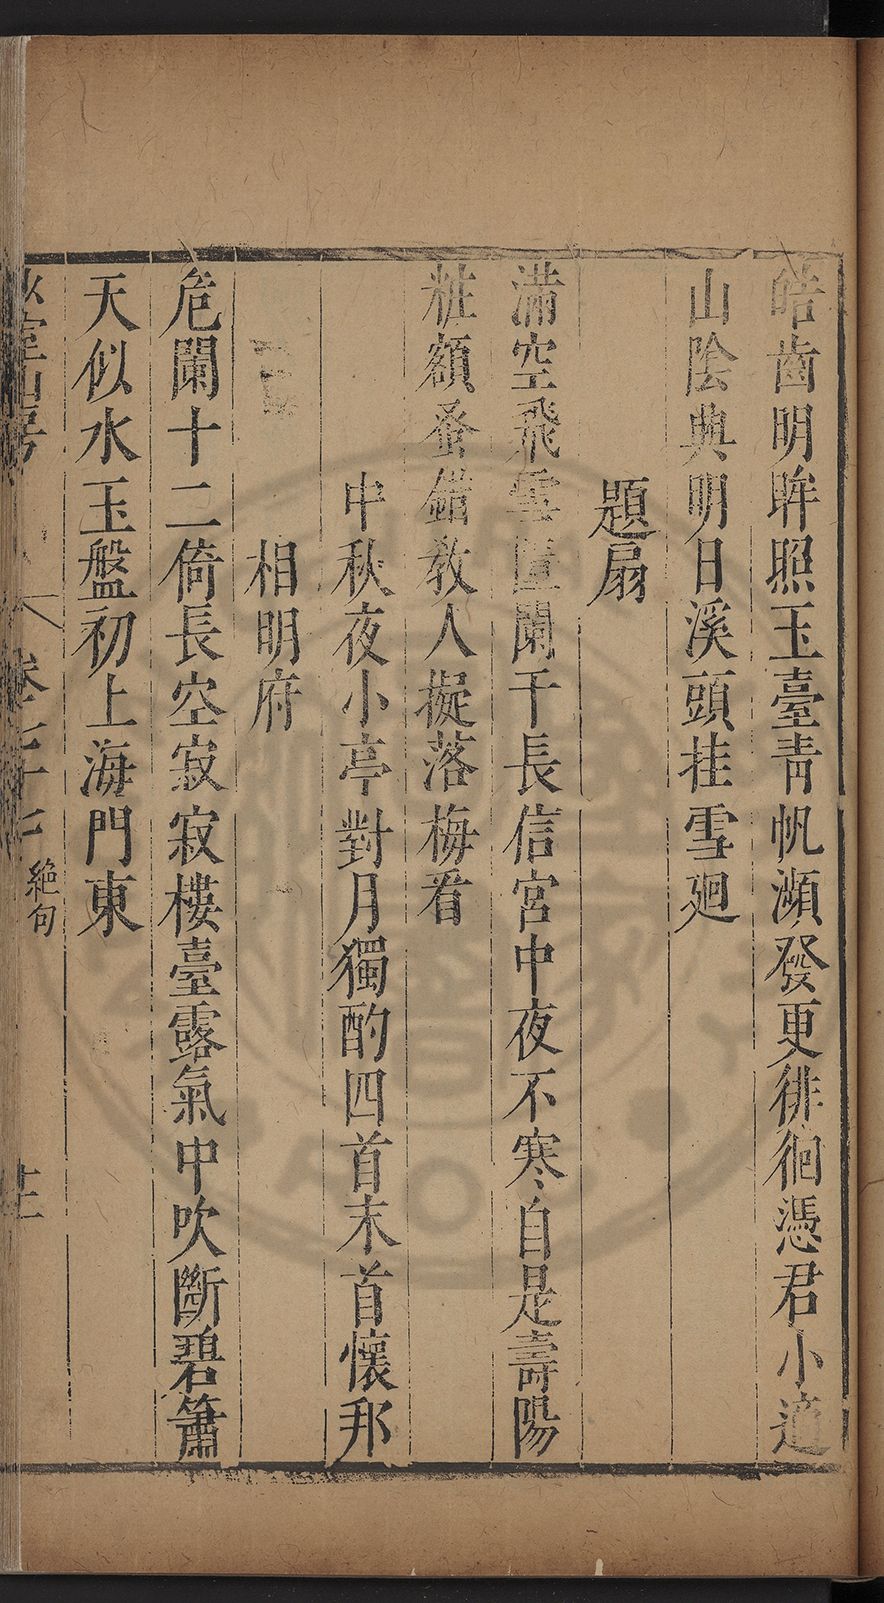 皓齒明眸照玉臺青帆瀕發更徘徊憑君小適
山陰典明日溪頭挂雪廻
題扇
滿空飛雪匝闌干長信宮中夜不寒自是壽陽
粧額蚤錯教人擬落梅看
中秋夜小亭對月獨酌四首末首懷邦
相明府
危闌十二倚長空寂寂樓臺露氣中吹斷碧簫
天似水玉盤初上海門東
山房
卷七十七
絕句